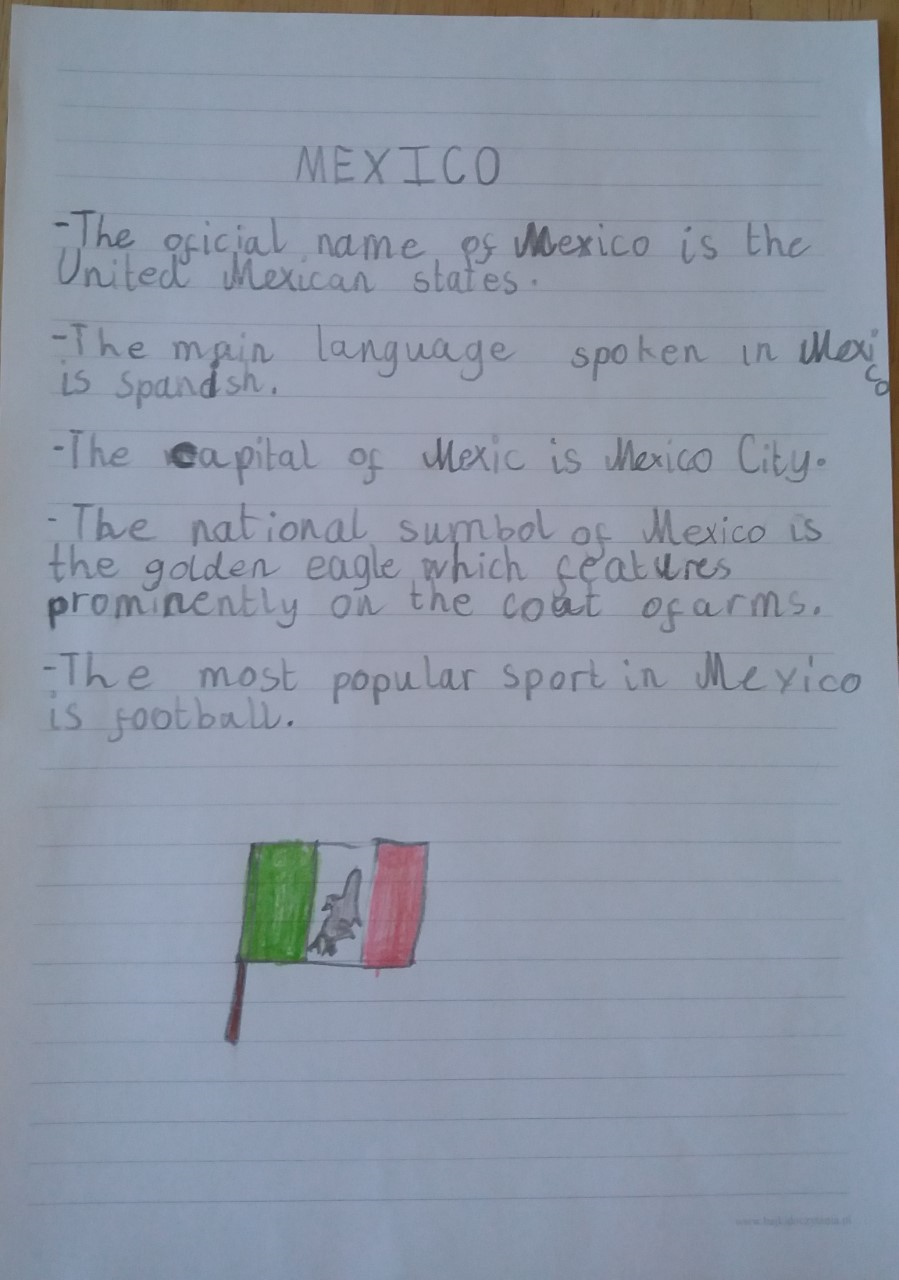 MEXICO
-The oficial name of Mexico is the
United Mexican states.
-The main language spoken in Mexico
is Spandsh.
-The capital of Mexic is Mexico City.
-The national sumbol of Mexico is
the golden eagle which features
prominently on the coat of arms.
-The most popular sport in Mexico
is football.